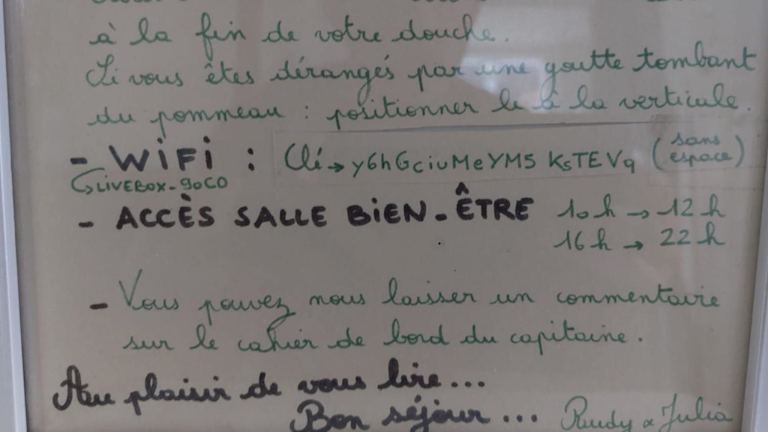 à la fin de votre douche.
Si vous êtes dérangés par une goutte tombant
du pommeau : positionner le à la verticale.
- WiFi : Clé → y6hGciuMeYM5 KsTEVq (sans espace)
↳ LIVEBOX-90CO
- ACCÈS SALLE BiEN-ÊTRE 10h → 12h
16h → 22h
- Vous pouvez nous laisser un commentaire
sur le cahier de bord du capitaine.
Au plaisir de vous lire...
Bon séjour... Rudy & Julia